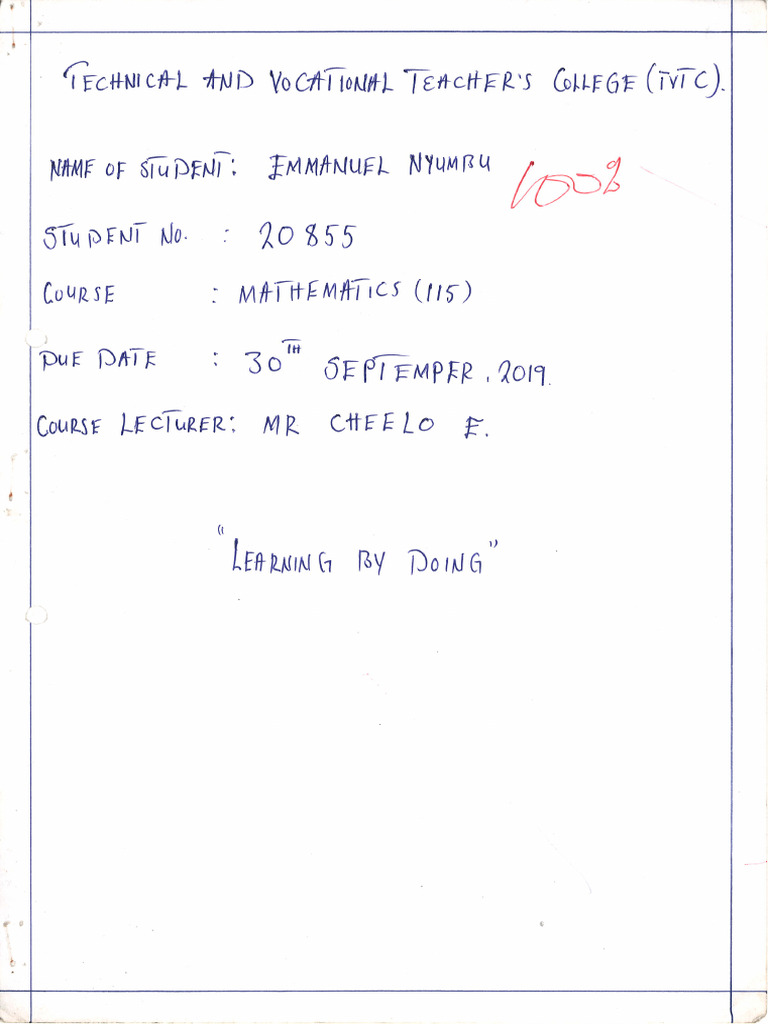 TECHNICAL AND VOCATIONAL TEACHER'S COLLEGE (TVTC).
NAME OF STUDENT: EMMANUEL NYUMBU
100%
STUDENT NO. : 20855
COURSE : MATHEMATICS (115)
DUE DATE : 30TH SEPTEMPER, 2019.
COURSE LECTURER: MR CHEELO E.
"LEARNING BY DOING"